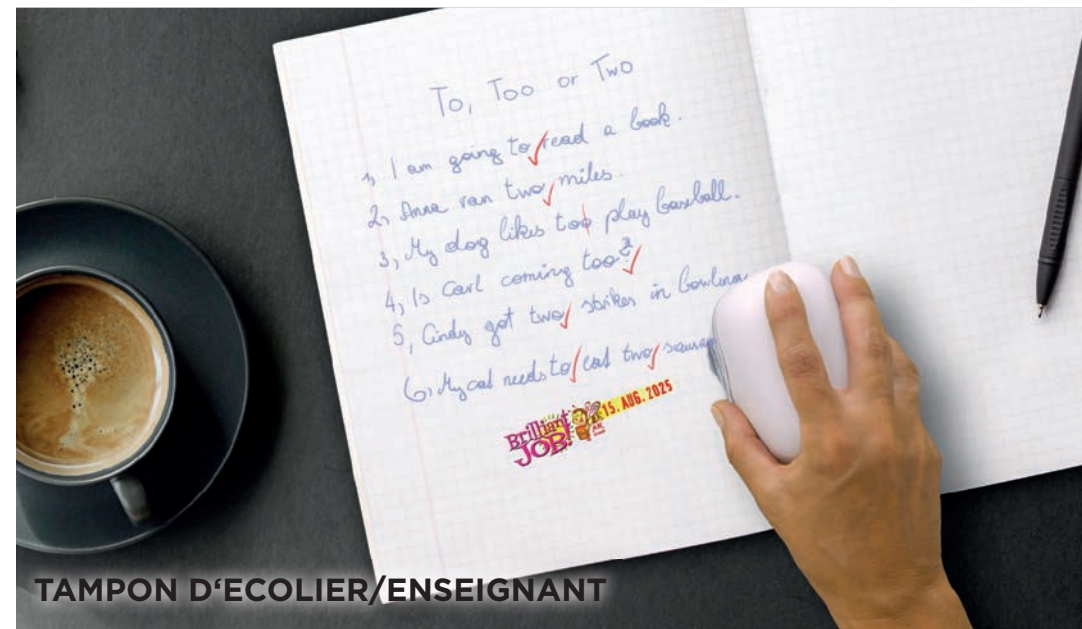 To, Too or Two
1, I am going to read a book.
2, Anna ran two miles.
3, My dog likes too play baseball.
4, Is Carl coming too?
5, Cindy got two strikes in bowling
6, My cat needs to eat two
Brilliant JOB!
15. AUG. 2025
TAMPON D‘ECOLIER/ENSEIGNANT